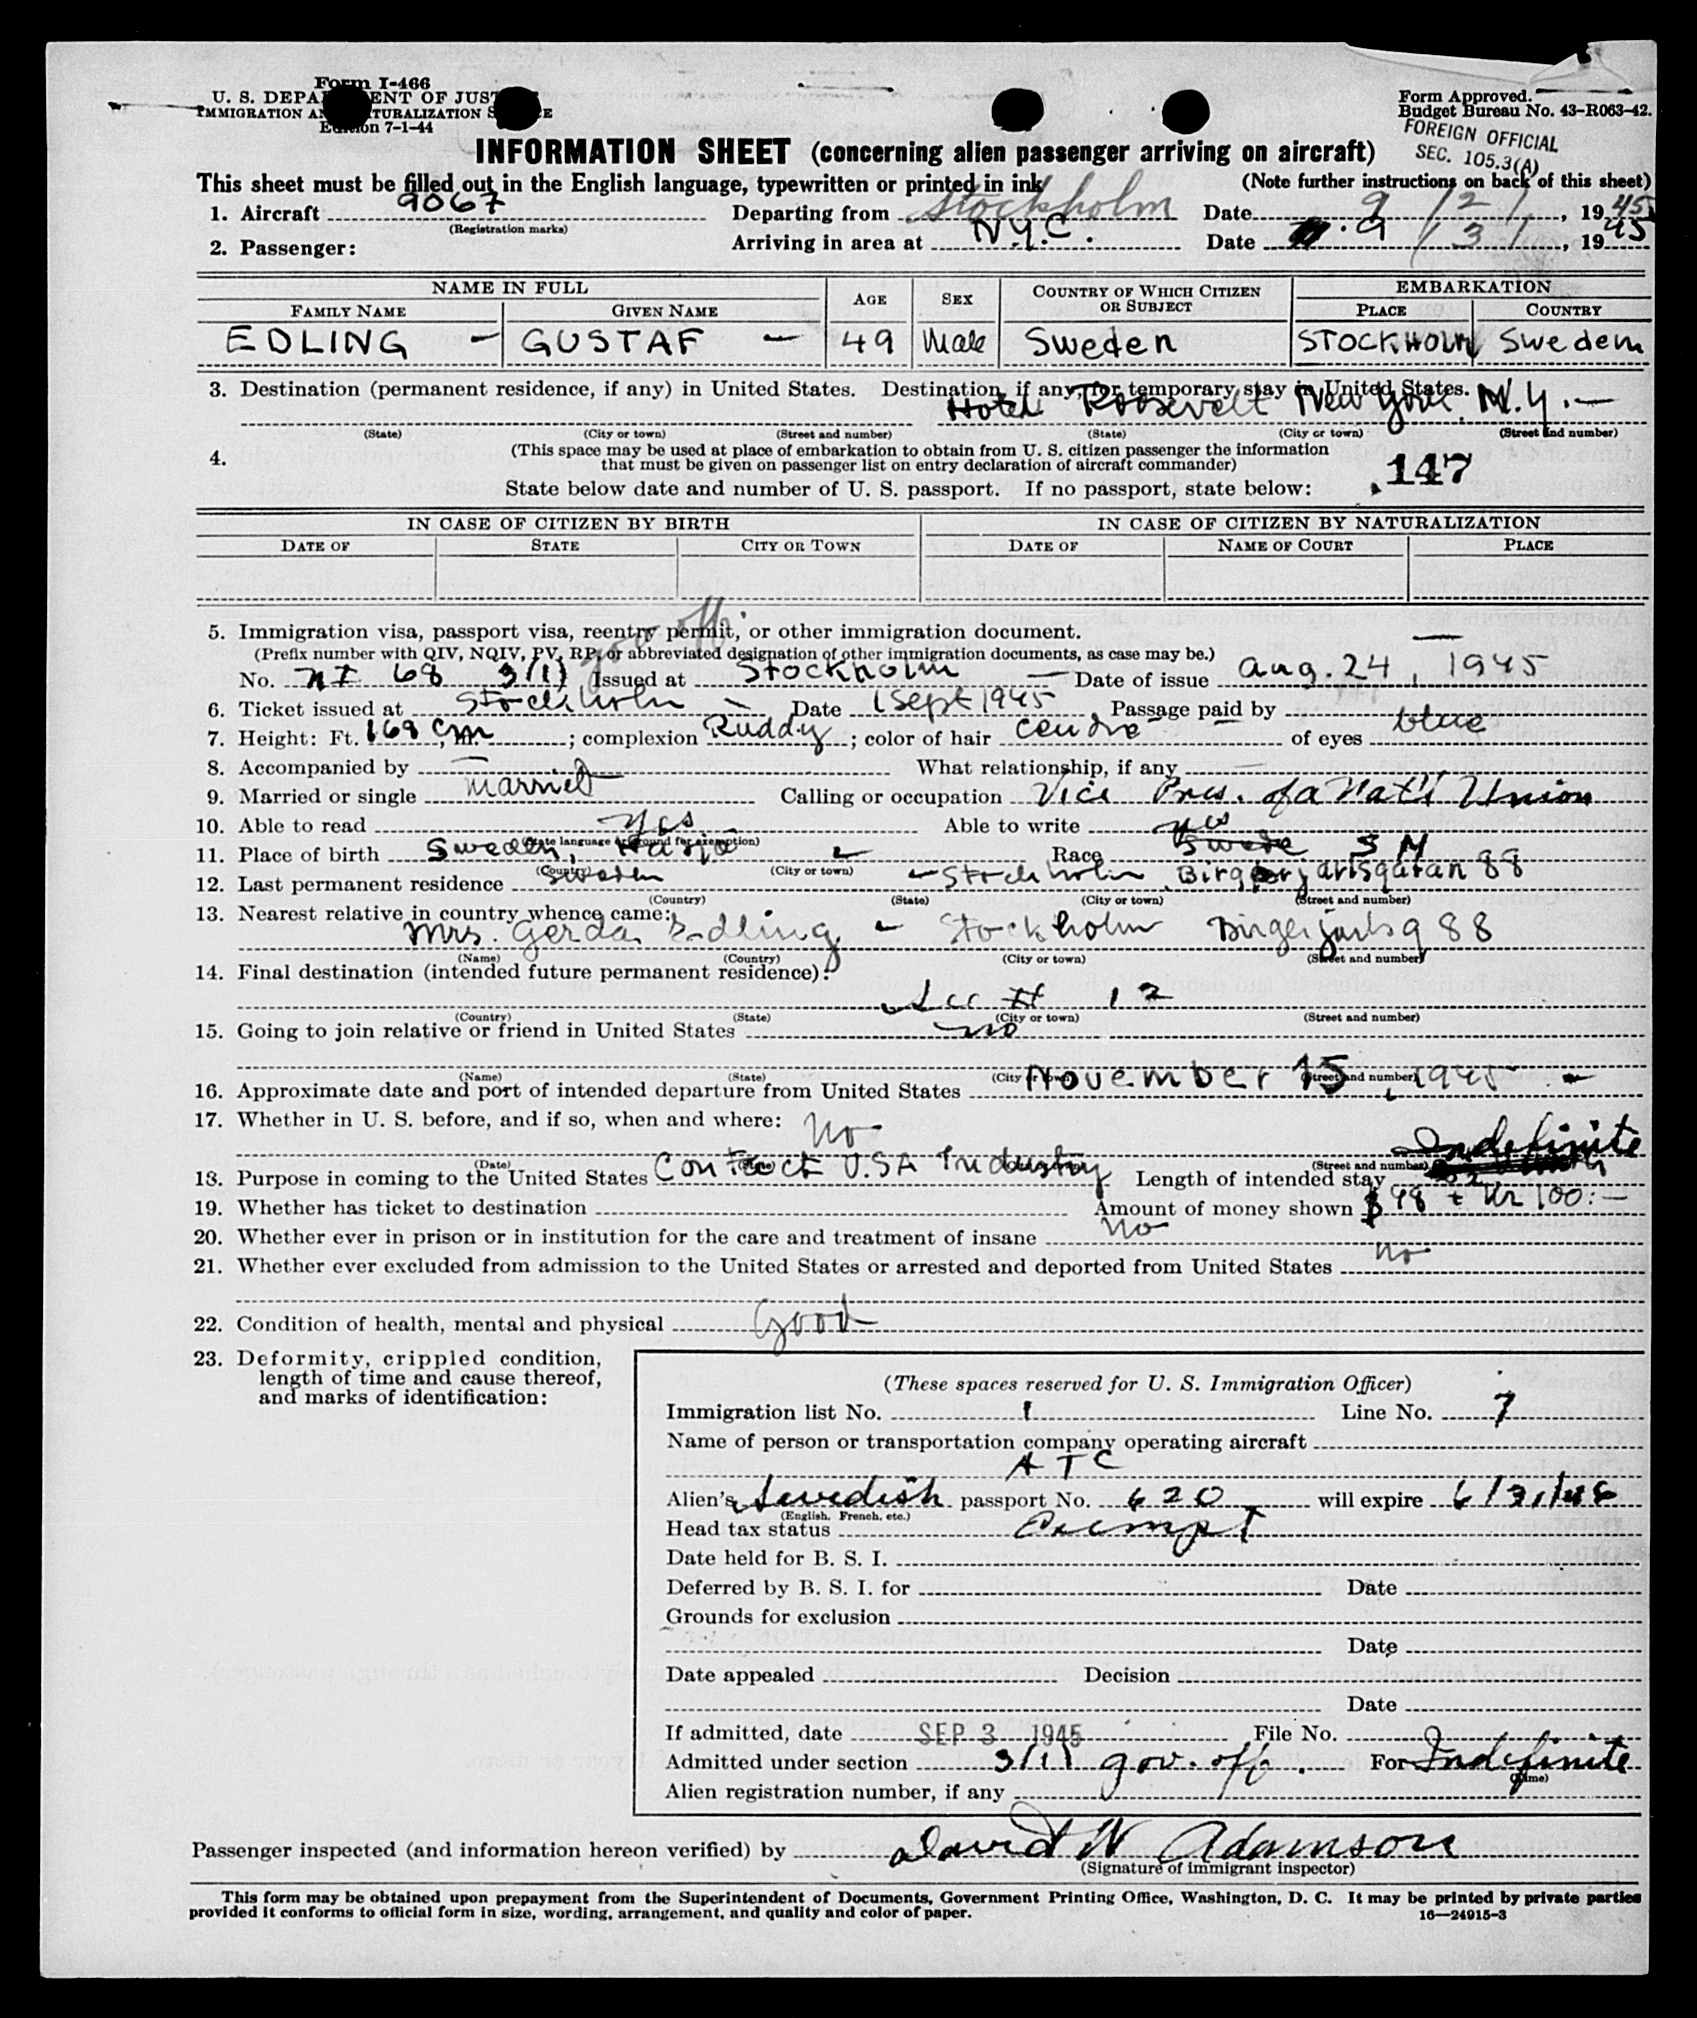 Form I-466
U. S. DEPA ENT OF JUS
IMMIGRATION AN TURALIZATION S E
Edition 7-1-44
Form Approved.
Budget Bureau No. 43-R063-42.
FOREIGN OFFICIAL
SEC. 105.3(A)
INFORMATION SHEET (concerning alien passenger arriving on aircraft)
This sheet must be filled out in the English language, typewritten or printed in ink
(Note further instructions on back of this sheet)
1. Aircraft 9067 Departing from Stockholm Date 9/2/, 1945
(Registration marks)
2. Passenger: Arriving in area at N.Y.C. Date 9/3/, 1945
NAME IN FULL AGE SEX COUNTRY OF WHICH CITIZEN OR SUBJECT EMBARKATION
FAMILY NAME GIVEN NAME PLACE COUNTRY
EDLING – GUSTAF – 49 Male Sweden STOCKHOLM Sweden
3. Destination (permanent residence, if any) in United States. Destination, if any, for temporary stay in United States.
Hotel Roosevelt New York, N.Y. –
(State) (City or town) (Street and number) (State) (City or town) (Street and number)
4. (This space may be used at place of embarkation to obtain from U. S. citizen passenger the information
that must be given on passenger list on entry declaration of aircraft commander)
147
State below date and number of U. S. passport. If no passport, state below:
IN CASE OF CITIZEN BY BIRTH IN CASE OF CITIZEN BY NATURALIZATION
DATE OF STATE CITY OR TOWN DATE OF NAME OF COURT PLACE
5. Immigration visa, passport visa, reentry permit, or other immigration document.
gov off.
(Prefix number with QIV, NQIV, PV, RP, or abbreviated designation of other immigration documents, as case may be.)
No. NI 68 3(1) Issued at Stockholm – Date of issue Aug. 24, 1945
6. Ticket issued at Stockholm – Date 1 Sept 1945 Passage paid by
7. Height: Ft. 169 cm, in. ; complexion Ruddy ; color of hair cendre of eyes blue
8. Accompanied by – What relationship, if any –
9. Married or single married Calling or occupation Vice Pres. of a Nat'l Union
10. Able to read yes Able to write yes
(State language or ground for exemption)
11. Place of birth Sweden, Hasjö – Race Swede S M
(Country) (City or town)
12. Last permanent residence Sweden – Stockholm, Birgerjarlsgatan 88
(Country) (State) (City or town) (Street and number)
13. Nearest relative in country whence came:
Mrs. Gerda Edling – Stockholm Birgerjarlsg 88
(Name) (Country) (City or town) (Street and number)
14. Final destination (intended future permanent residence):
See # 12
(Country) (State) (City or town) (Street and number)
15. Going to join relative or friend in United States no
(Name) (State) (City or town) (Street and number)
16. Approximate date and port of intended departure from United States November 15, 1945 –
17. Whether in U. S. before, and if so, when and where: No
Indefinite
(Date) (Street and number)
18. Purpose in coming to the United States Contact USA Industry Length of intended stay
19. Whether has ticket to destination Amount of money shown $ 98 + Kr 100:–
20. Whether ever in prison or in institution for the care and treatment of insane No
21. Whether ever excluded from admission to the United States or arrested and deported from United States No
22. Condition of health, mental and physical Good
23. Deformity, crippled condition,
length of time and cause thereof,
and marks of identification:
(These spaces reserved for U. S. Immigration Officer)
Immigration list No. 1 Line No. 7
Name of person or transportation company operating aircraft
ATC
Alien's Swedish passport No. 620 will expire 6/31/46
(English, French, etc.)
Head tax status Exempt
Date held for B. S. I.
Deferred by B. S. I. for Date
Grounds for exclusion
Date
Date appealed Decision
Date
If admitted, date SEP 3 1945 File No.
Admitted under section 3(1) gov. off. For Indefinite
(Time)
Alien registration number, if any
Passenger inspected (and information hereon verified) by David W Adamson
(Signature of immigrant inspector)
This form may be obtained upon prepayment from the Superintendent of Documents, Government Printing Office, Washington, D. C. It may be printed by private parties
provided it conforms to official form in size, wording, arrangement, and quality and color of paper.
16—24915-3